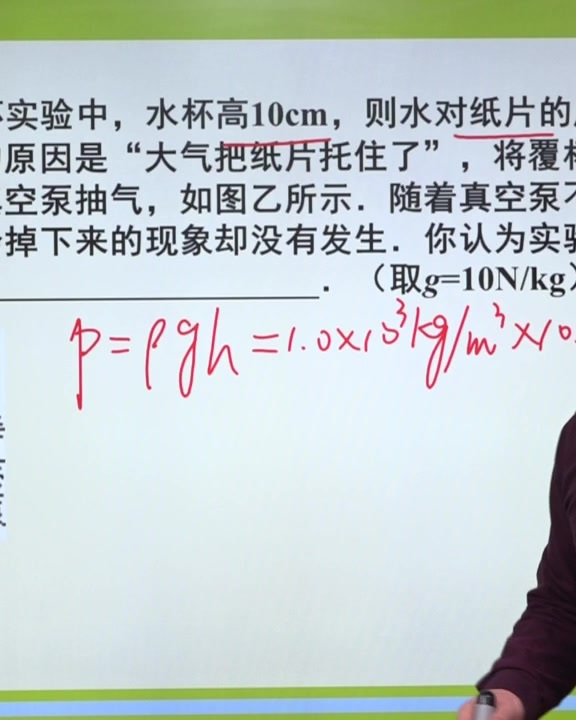 实验中，水杯高10cm，则水对纸片的
原因是“大气把纸片托住了”，将覆杯
空泵抽气，如图乙所示．随着真空泵不
掉下来的现象却没有发生．你认为实验
．（取g=10N/kg）
p=ρgh=1.0×10³kg/m³×10